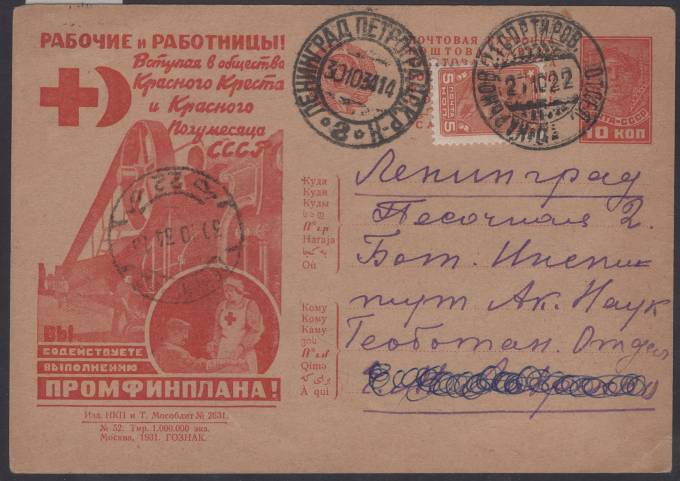 РАБОЧИЕ и РАБОТНИЦЫ!
Вступая в общества
Красного Креста
и Красного
Полумесяца
СССР
ВЫ
СОДЕЙСТВУЕТЕ
ВЫПОЛНЕНИЮ
ПРОМФИНПЛАНА!
Изд. НКП и Т. Мособлит № 2631.
№ 52. Тир. 1.000.000 экз.
Москва, 1931. ГОЗНАК.
ПОЧТОВАЯ
ЛЕНИНГРАД ПЕТРОГРАДСК. Р-Н
30 10 34 14
5 КОП
ПОЧТА
5
СОРТИРОВ
22
10 КОП
Куда
Куди
Куды
Haraja
Où
Кому
Кому
Каму
Qima
À qui
Ленинград
Песочная 2.
Бот. Инсти-
тут Ак. Наук
Геоботан. Отдел